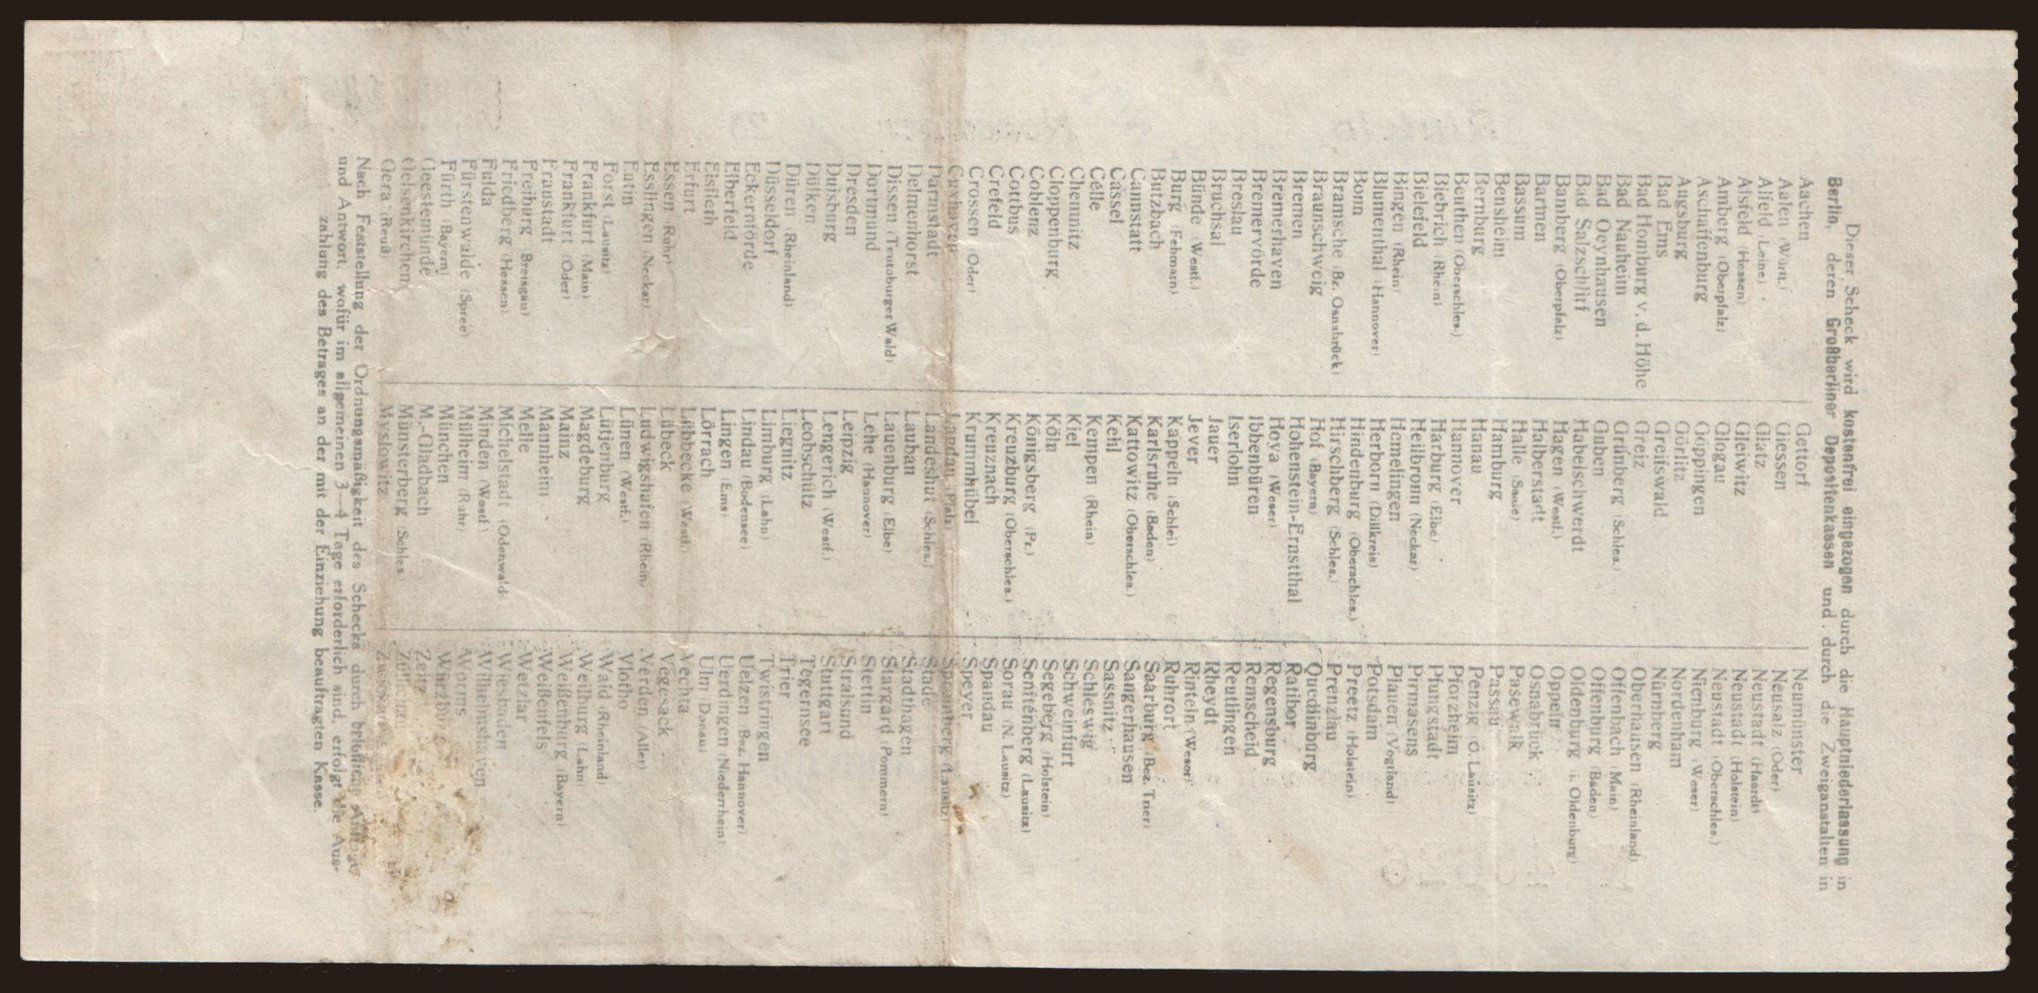 Dieser Scheck wird kostenfrei eingezogen durch die Hauptniederlassung in
Berlin, deren Großberliner Depositenkassen und durch die Zweiganstalten in
Aachen
Aalen (Württ.)
Alfeld (Leine)
Alsfeld (Hessen)
Amberg (Oberpfalz)
Aschaffenburg
Augsburg
Bad Ems
Bad Homburg v. d. Höhe
Bad Nauheim
Bad Oeynhausen
Bad Salzschlirf
Bamberg (Oberpfalz)
Barmen
Bassum
Bensheim
Bernburg
Beuthen (Oberschles.)
Biebrich (Rhein)
Bielefeld
Bingen (Rhein)
Blumenthal (Hannover)
Bonn
Bramsche (Bz. Osnabrück)
Braunschweig
Bremen
Bremerhaven
Bremervörde
Breslau
Bruchsal
Bünde (Westf.)
Burg (Fehmarn)
Butzbach
Cannstatt
Cassel
Celle
Chemnitz
Cloppenburg
Coblenz
Cottbus
Crefeld
Crossen (Oder)
Cuxhaven
Darmstadt
Delmenhorst
Dissen (Teutoburger Wald)
Dortmund
Dresden
Duisburg
Dülken
Düren (Rheinland)
Düsseldorf
Eckernförde
Elberfeld
Elsfleth
Erfurt
Essen (Ruhr)
Esslingen (Neckar)
Eutin
Forst (Lausitz)
Frankfurt (Main)
Frankfurt (Oder)
Fraustadt
Freiburg (Breisgau)
Friedberg (Hessen)
Fulda
Fürstenwalde (Spree)
Fürth (Bayern)
Geestemünde
Gelsenkirchen
Gera (Reuß)
Gettorf
Giessen
Glatz
Gleiwitz
Glogau
Göppingen
Görlitz
Greifswald
Greiz
Grünberg (Schles.)
Guben
Habelschwerdt
Hagen (Westf.)
Halberstadt
Halle (Saale)
Hamburg
Hanau
Hannover
Harburg (Elbe)
Heilbronn (Neckar)
Hemelingen
Herborn (Dillkreis)
Hindenburg (Oberschles.)
Hirschberg (Schles.)
Hof (Bayern)
Hohenstein-Ernstthal
Hoya (Weser)
Ibbenbüren
Iserlohn
Jauer
Jever
Kappeln (Schlei)
Karlsruhe (Baden)
Kattowitz (Oberschles.)
Kehl
Kempen (Rhein)
Kiel
Köln
Königsberg (Pr.)
Kreuzburg (Oberschles.)
Kreuznach
Krummhübel
Landau (Pfalz)
Landeshut (Schles.)
Lauban
Lauenburg (Elbe)
Lehe (Hannover)
Leipzig
Lengerich (Westf.)
Leobschütz
Liegnitz
Limburg (Lahn)
Lindau (Bodensee)
Lingen (Ems)
Lörrach
Lübbecke (Westf.)
Lübeck
Ludwigshafen (Rhein)
Lünen (Westf.)
Lütjenburg
Magdeburg
Mainz
Mannheim
Melle
Michelstadt (Odenwald)
Minden (Westf.)
Mülheim (Ruhr)
München
M.-Gladbach
Münsterberg (Schles.)
Myslowitz
Neumünster
Neusalz (Oder)
Neustadt (Haardt)
Neustadt (Holstein)
Neustadt (Oberschles.)
Nienburg (Weser)
Nordenham
Nürnberg
Oberhausen (Rheinland)
Offenbach (Main)
Offenburg (Baden)
Oldenburg (i. Oldenburg)
Oppeln
Osnabrück
Pasewalk
Passau
Penzig (O. Lausitz)
Pforzheim
Pfungstadt
Pirmasens
Plauen (Vogtland)
Potsdam
Preetz (Holstein)
Prenzlau
Quedlinburg
Ratibor
Regensburg
Remscheid
Reutlingen
Rheydt
Rinteln (Weser)
Ruhrort
Saarburg (Bez. Trier)
Sangerhausen
Sassnitz
Schleswig
Schweinfurt
Segeberg (Holstein)
Senftenberg (Lausitz)
Sorau (N. Lausitz)
Spandau
Speyer
Spremberg (Lausitz)
Stade
Stadthagen
Stargard (Pommern)
Stettin
Stralsund
Stuttgart
Tegernsee
Trier
Twistringen
Uelzen (Bez. Hannover)
Uerdingen (Niederrhein)
Ulm (Donau)
Vechta
Vegesack
Verden (Aller)
Vlotho
Wald (Rheinland)
Weilburg (Lahn)
Weißenburg (Bayern)
Weißenfels
Wetzlar
Wiesbaden
Wilhelmshaven
Worms
Würzburg
Zeitz
Nach Feststellung der Ordnungsmäßigkeit des Schecks durch briefliche Anfrage
und Antwort, wofür im allgemeinen 3—4 Tage erforderlich sind, erfolgt die Aus-
zahlung des Betrages an der mit der Einziehung beauftragten Kasse.